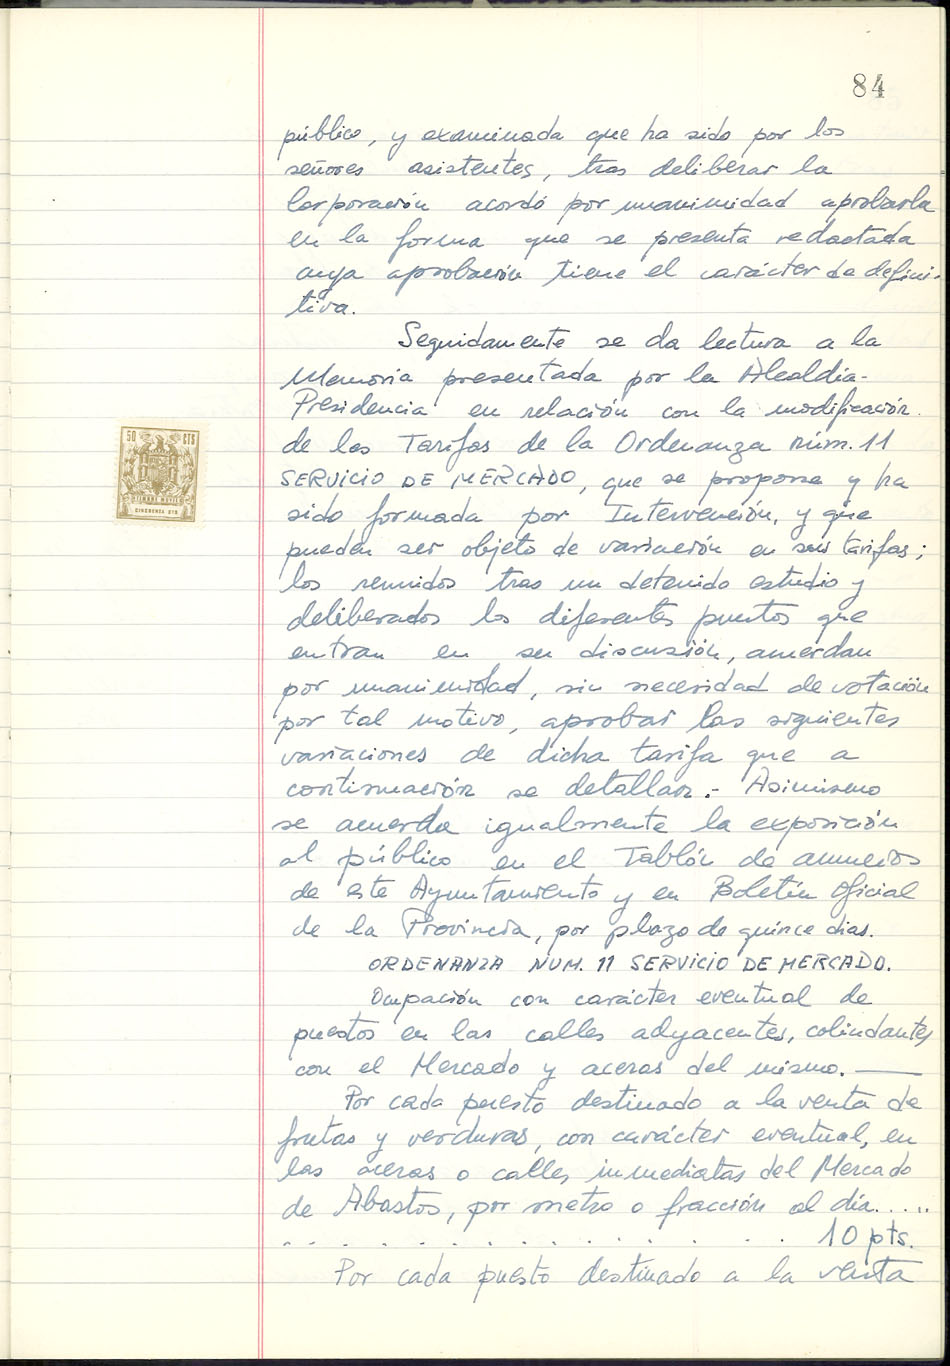 84
público, y examinada que ha sido por los
señores asistentes, tras deliberar la
Corporación acordó por unanimidad aprobarla
en la forma que se presenta redactada
cuya aprobación tiene el carácter de defini-
tiva.
Seguidamente se da lectura a la
Memoria presentada por la Alcaldía-
Presidencia en relación con la modificación
de las Tarifas de la Ordenanza núm. 11
SERVICIO DE MERCADO, que se propone y ha
sido formada por Intervención, y que
pueden ser objeto de variación en sus tarifas;
los reunidos tras un detenido estudio y
deliberados los diferentes puntos que
entran en su discusión, acuerdan
por unanimidad, sin necesidad de votación
por tal motivo, aprobar las siguientes
variaciones de dicha tarifa que a
continuación se detallan.- Asimismo
se acuerda igualmente la exposición
al público en el Tablón de anuncios
de este Ayuntamiento y en Boletín Oficial
de la Provincia, por plazo de quince días.
ORDENANZA NUM. 11 SERVICIO DE MERCADO.
Ocupación con carácter eventual de
puestos en las calles adyacentes, colindantes
con el Mercado y aceras del mismo.
Por cada puesto destinado a la venta de
frutas y verduras, con carácter eventual, en
las aceras o calles inmediatas del Mercado
de Abastos, por metro o fracción al día.....
. . . . . . . . . . . . . . . 10 pts.
Por cada puesto destinado a la venta
50 CTS
TIMBRE MOVIL
CINCUENTA CTS